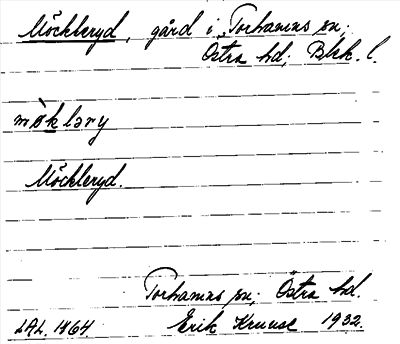 Möckleryd, gård i Torhamns sn;
Östra hd; Blek. l.
mökləry
Möckleryd.
Torhamns sn; Östra hd.
LAL. 1864. Erik Kruuse 1932.